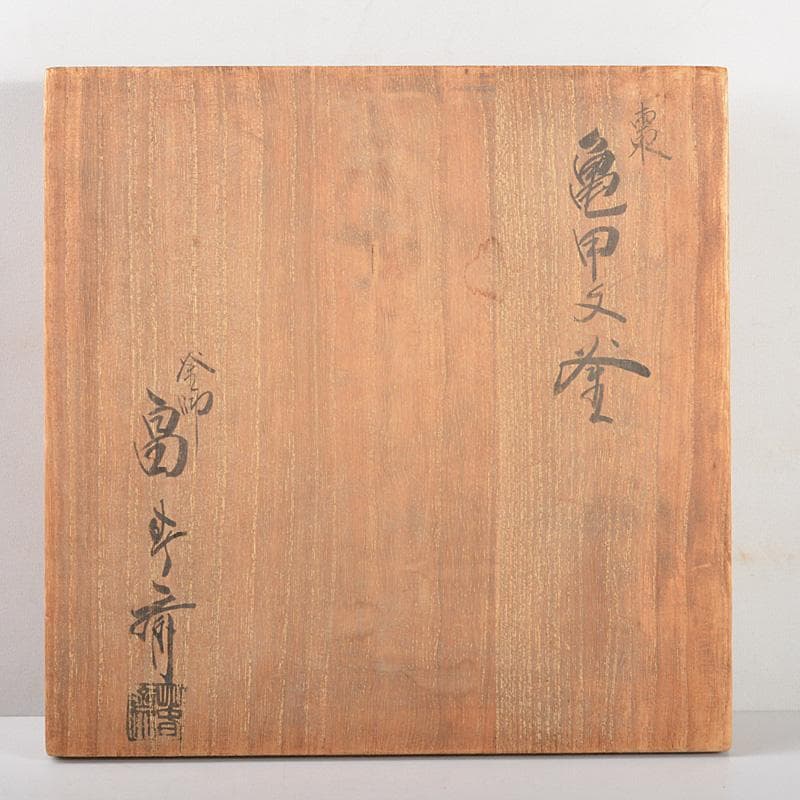 棗
亀甲文釜
釜師
畠春斎